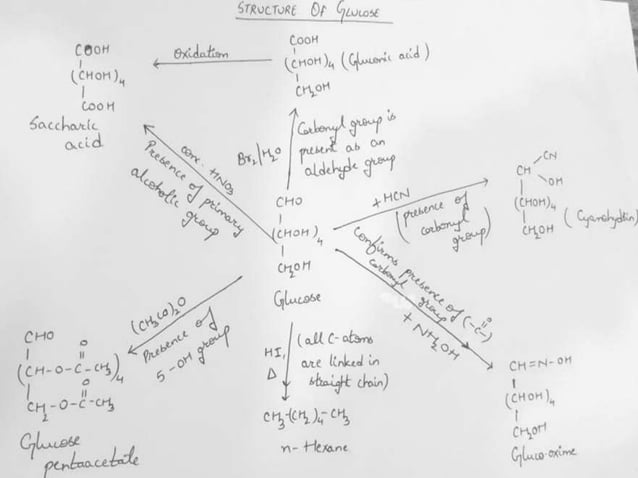 STRUCTURE OF GLUCOSE
COOH
(CHOH)4
COOH
Saccharic
acid
Oxidation
COOH
(CHOH)4 (Gluconic acid)
CH2OH
Br2/H2O
Carbonyl group is
present as an
aldehyde group
conc. HNO3
Presence of primary
alcoholic group
CHO
(CHOH)4
CH2OH
Glucose
+HCN
(presence of
carbonyl
group)
CN
CH
OH
(CHOH)4
CH2OH
(Cyanohydrin)
Confirms presence of (-C-)
O
carbonyl group
+ NH2OH
CH=N-OH
(CHOH)4
CH2OH
Gluco-oxime
(CH3CO)2O
Presence of
5-OH group
CHO
O
(CH-O-C-CH3)4
O
CH2-O-C-CH3
Glucose
pentaacetate
HI,
Δ
(all C-atoms
are linked in
straight chain)
CH3-(CH2)4-CH3
n-Hexane